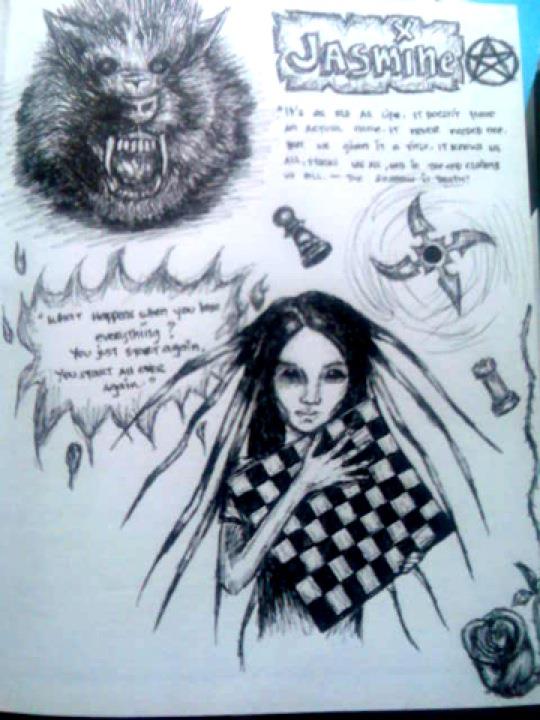 x
JASMINE
"It's as old as life. It doesn't have
an actual name. It never needed one.
But we given it a
It knows us
all, it us all, and in the end
us all. — The is Death"
"What happens when you lose
everything?
You just start again.
You start all over
again."